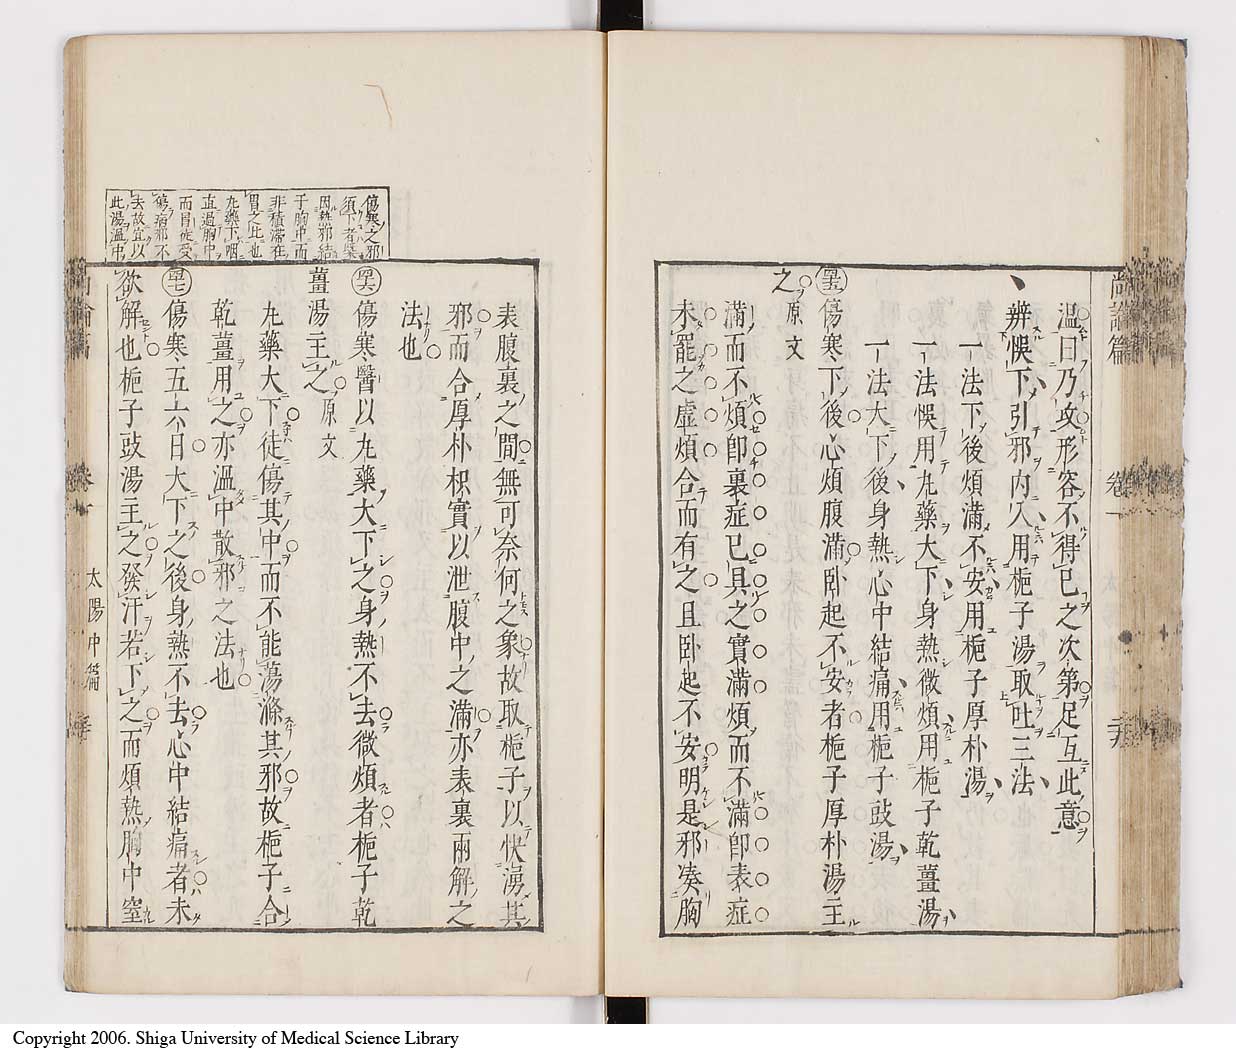 尚論篇 卷一
溫曰乃攻形容不得已之次第足互此意
辨悞下引邪内入用梔子湯取吐三法
一法下後煩滿不安用梔子厚朴湯
一法悞用丸藥大下身熱微煩用梔子乾薑湯
一法大下後身熱心中結痛用梔子豉湯
傷寒下後心煩腹滿卧起不安者梔子厚朴湯主
之原文
滿而不煩卽裏症已具之實滿煩而不滿卽表症
未罷之虛煩合而有之且卧起不安明是邪凑胸
表腹裏之間無可奈何之象故取梔子以快湧其
邪而合厚朴枳實以泄腹中之滿亦表裏兩解之
法也
傷寒醫以丸藥大下之身熱不去微煩者梔子乾
薑湯主之原文
丸藥大下徒傷其中而不能蕩滌其邪故梔子合
乾薑用之亦溫中散邪之法也
傷寒五六日大下之後身熱不去心中結痛者未
欲解也梔子豉湯主之發汗若下之而煩熱胸中窒
傷寒之邪
須下者槩
因熱邪結
于胸中而
非積滯在
胃之比也
丸藥下咽
直過胸中
而胃徒受
傷病邪不
去故宜以
此湯溫中
太陽中篇
Copyright 2006. Shiga University of Medical Science Library